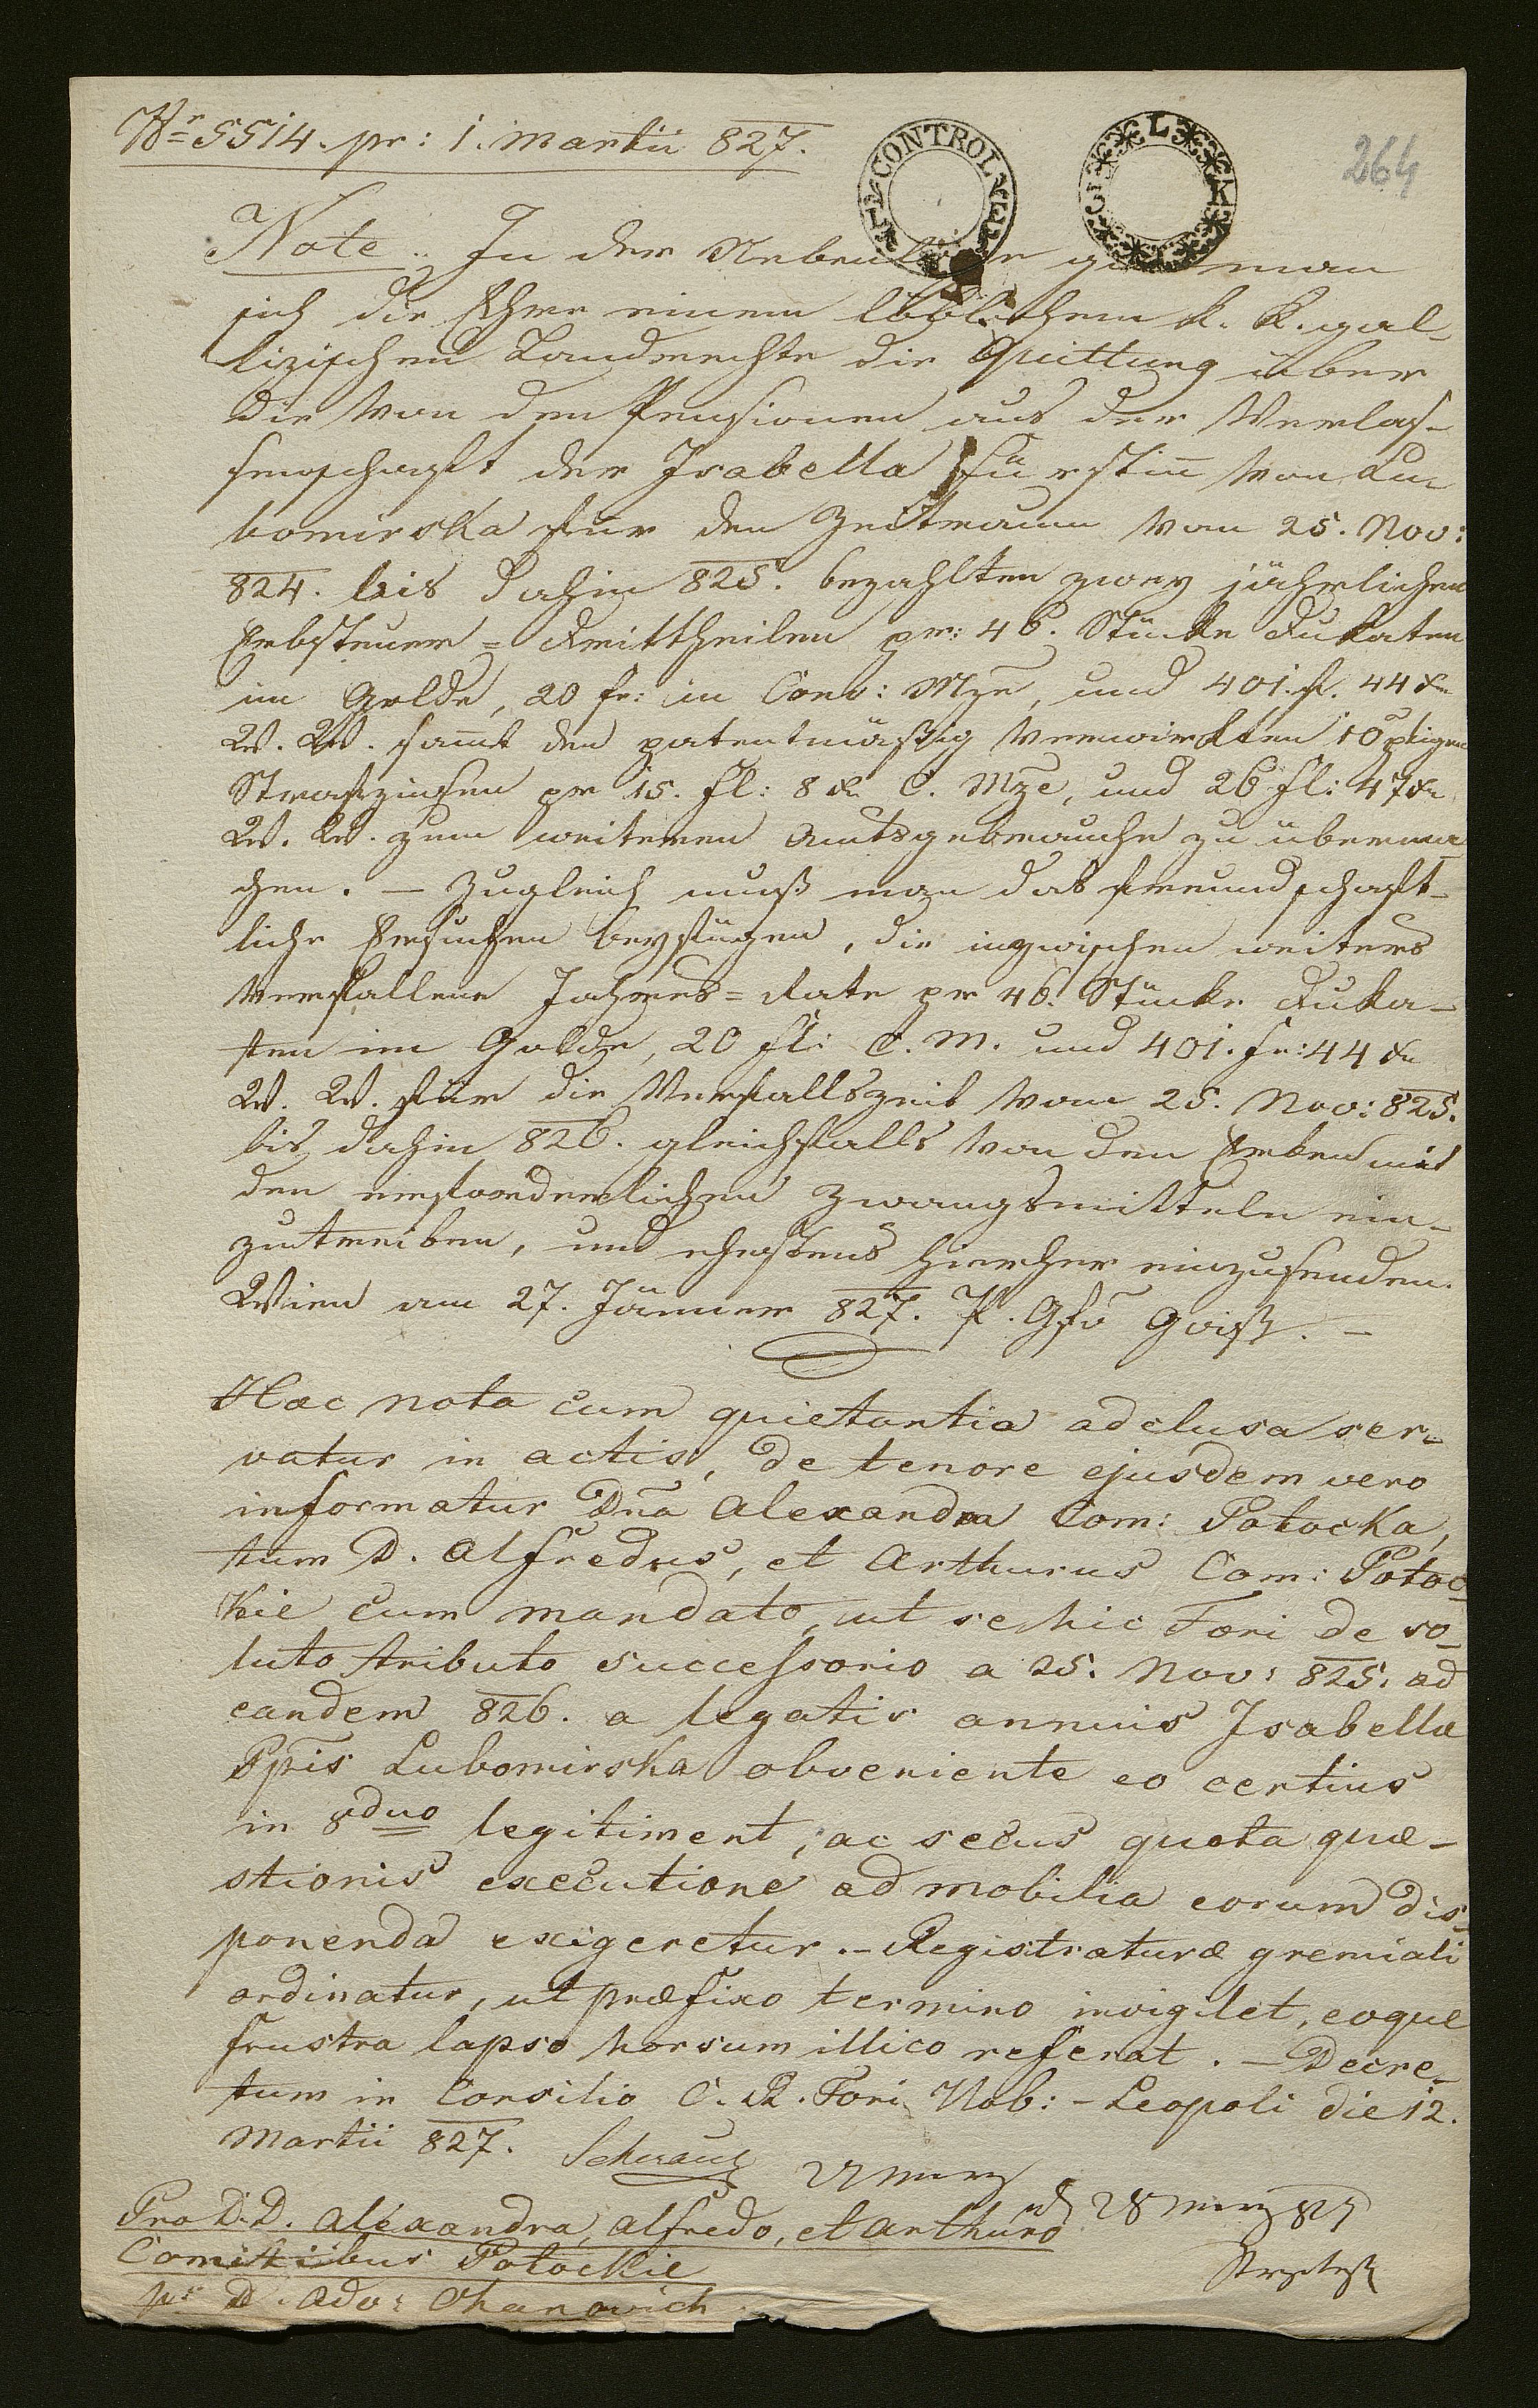 Nr 5514. pr: 1. Martii 827.
CONTROL
L K
264
Note. In der Nebenlage gibt man
sich die Ehre einem löblichem k. k. gal-
lizischen Landrechte die Quittung über
die von den Pensionen aus der Verlas-
senschaft der Isabella Fürstin von Lu-
bomirska für den Zeitraum vom 25. Nov:
824. bis dahin 825. bezahlten zwey jährlichen
Erbsteuer=Drittheilen pr: 46. Stücke Dukaten
im Golde, 20 fr: in Conv: Mze, und 401. fl. 44 xr
W. W. samt den patentmäßig verwirkten 10 ptigen
Strafzinsen pr 15. fl: 8 xr C. Mze, und 26 fl: 47 xr
W. W. zum weiteren Amtsgebrauche zu überma-
chen. – Zugleich muß man das freundschaft-
liche Ersuchen beyfügen, die inzwischen weiters
verfallene Jahres=Rate pr 46. Stücke Duka-
ten im Golde, 20 fl: C. M. und 401. fr: 44 xr
W. W. für die Verfallszeit vom 25. Nov: 825.
bis dahin 826. gleichfalls von den Erben mit
den erforderlichen Zwangsmitteln ein-
zutreiben, und ehestens hierher einzusenden.
Wien am 27. Jänner 827. –
Hæc nota cum quietantia adclusa ser-
vatur in actis, de tenore ejusdem vero
informatur Dna Alexandra Com: Potocka,
tum D. Alfredus, et Arthurus Com: Potoc-
kie cum mandato, ut se hic Fori de so-
luto tributo successorio a 25. Nov: 825. ad
eandem 826. a legatis annuis Isabellæ
Ppis Lubomirska obveniente eo certius
in 8duo legitiment, ac secus quota quæ-
stionis executione ad mobilia eorum dis-
ponenda exigeretur. – Registraturæ gremiali
ordinatur, ut præfixo termino invigilet, eoque
frustra lapso horsum illico referat. – Decre-
tum in Consilio C. R. Fori Nob: – Leopoli die 12.
Martii 827.
28 827
Pro D.D. Alexandra, Alfredo, et Arthuro
Comitibus Potockie
pr D. Adv: Ohanowich